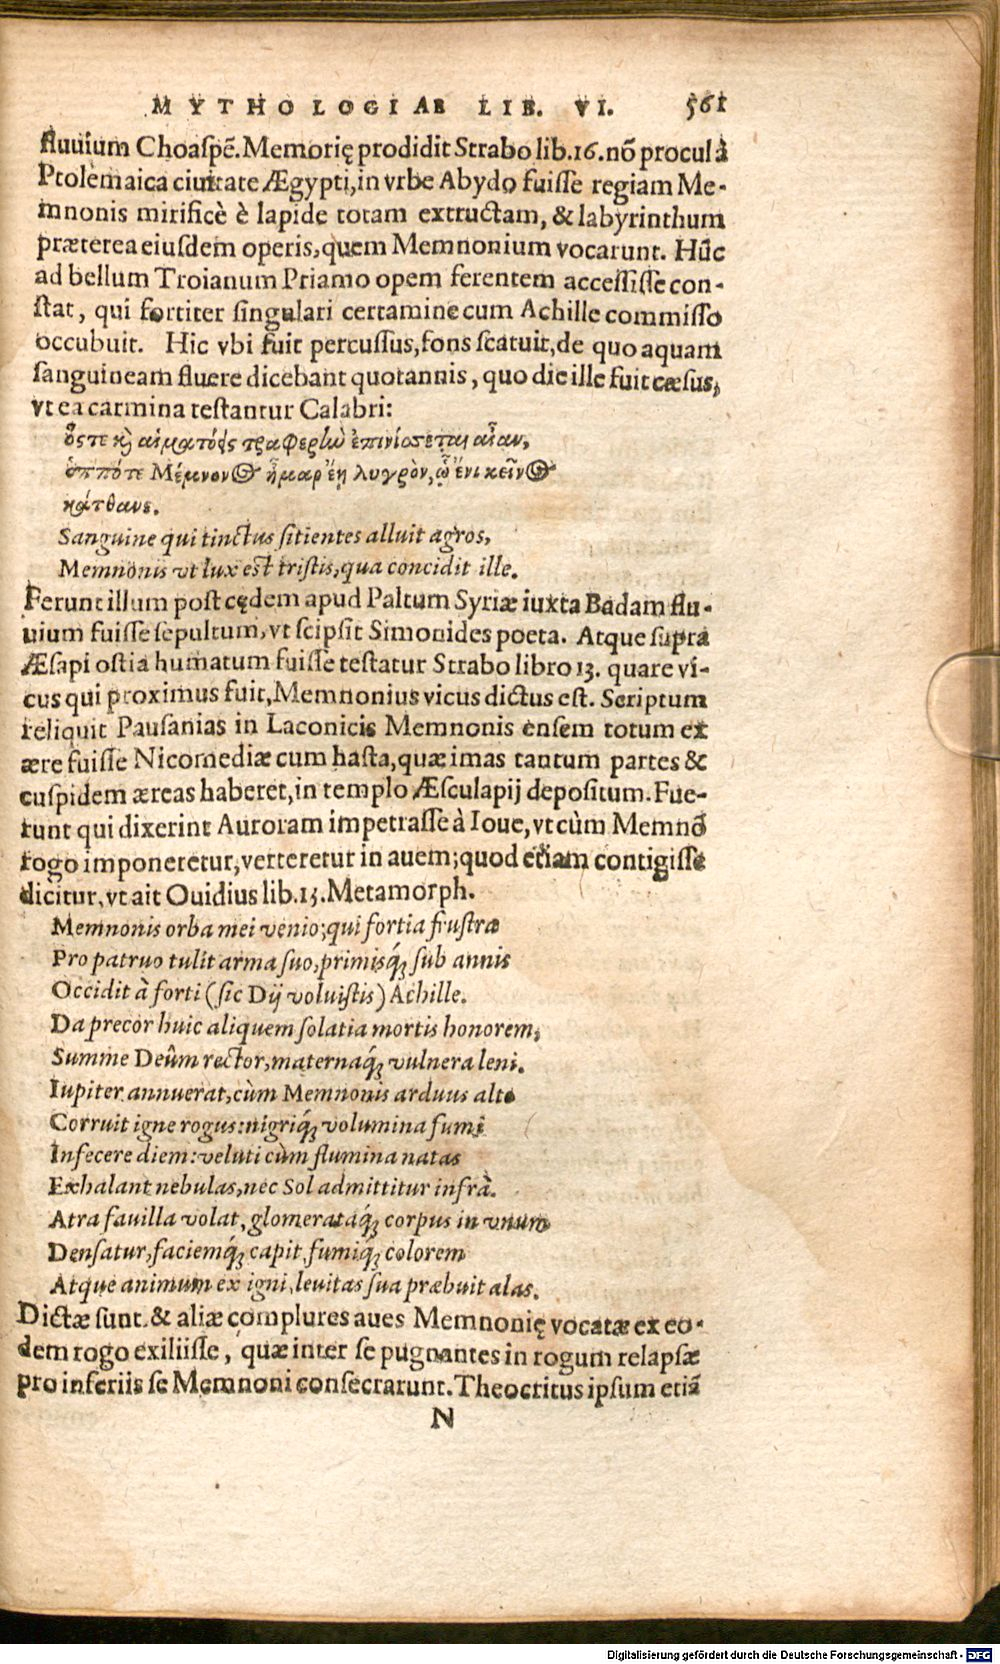 MYTHOLOGIAE LIB. VI. 561
fluuium Choaſpẽ. Memorię prodidit Strabo lib.16. nõ procul à
Ptolemaica ciuitate Ægypti, in vrbe Abydo fuiſſe regiam Me-
mnonis mirificè è lapide totam extructam, & labyrinthum
præterea eiuſdem operis, quem Memnonium vocarunt. Hũc
ad bellum Troianum Priamo opem ferentem acceſſiſſe con-
ſtat, qui fortiter ſingulari certamine cum Achille commiſſo
occubuit. Hic vbi fuit percuſſus, fons ſcatuit, de quo aquam
ſanguineam fluere dicebant quotannis, quo die ille fuit cæſus,
vt ea carmina teſtantur Calabri:
ὅς τε καὶ αἱματόεις τραφερὴν ἐπινίσσεται αἶαν,
ὁππότε Μέμνονος ἦμαρ ἔῃ λυγρὸν, ᾧ ἔνι κεῖνος
κάτθανε.
Sanguine qui tinctus ſitientes alluit agros,
Memnonis vt lux eſt triſtis, qua concidit ille.
Ferunt illum poſt cędem apud Paltum Syriæ iuxta Badam flu-
uium fuiſſe ſepultum, vt ſcipſit Simonides poeta. Atque ſupra
Æſapi oſtia humatum fuiſſe teſtatur Strabo libro 13. quare vi-
cus qui proximus fuit, Memnonius vicus dictus eſt. Scriptum
reliquit Pauſanias in Laconicis Memnonis enſem totum ex
ære fuiſſe Nicomediæ cum haſta, quæ imas tantum partes &
cuſpidem æreas haberet, in templo Æſculapij depoſitum. Fue-
runt qui dixerint Auroram impetraſſe à Ioue, vt cùm Memnõ
rogo imponeretur, verteretur in auem; quod etiam contigiſſe
dicitur, vt ait Ouidius lib.13. Metamorph.
Memnonis orba mei venio; qui fortia fruſtra
Pro patruo tulit arma ſuo, primisq́; ſub annis
Occidit à forti (ſic Dij voluiſtis) Achille.
Da precor huic aliquem ſolatia mortis honorem,
Summe Deûm rector, maternaq́; vulnera leni.
Iupiter annuerat, cùm Memnonis arduus alto
Corruit igne rogus: nigriq́; volumina fumi
Infecere diem: veluti cùm flumina natas
Exhalant nebulas, nec Sol admittitur infrà.
Atra fauilla volat, glomerataq́; corpus in vnum
Denſatur, faciemq́; capit, fumiq́; colorem
Atque animum ex igni, leuitas ſua præbuit alas.
Dictæ ſunt & aliæ complures aues Memnonię vocatæ ex eo-
dem rogo exiliiſſe, quæ inter ſe pugnantes in rogum relapſæ
pro inferiis ſe Memnoni conſecrarunt. Theocritus ipſum etiã
N
Digitalisierung gefördert durch die Deutsche Forschungsgemeinschaft - DFG